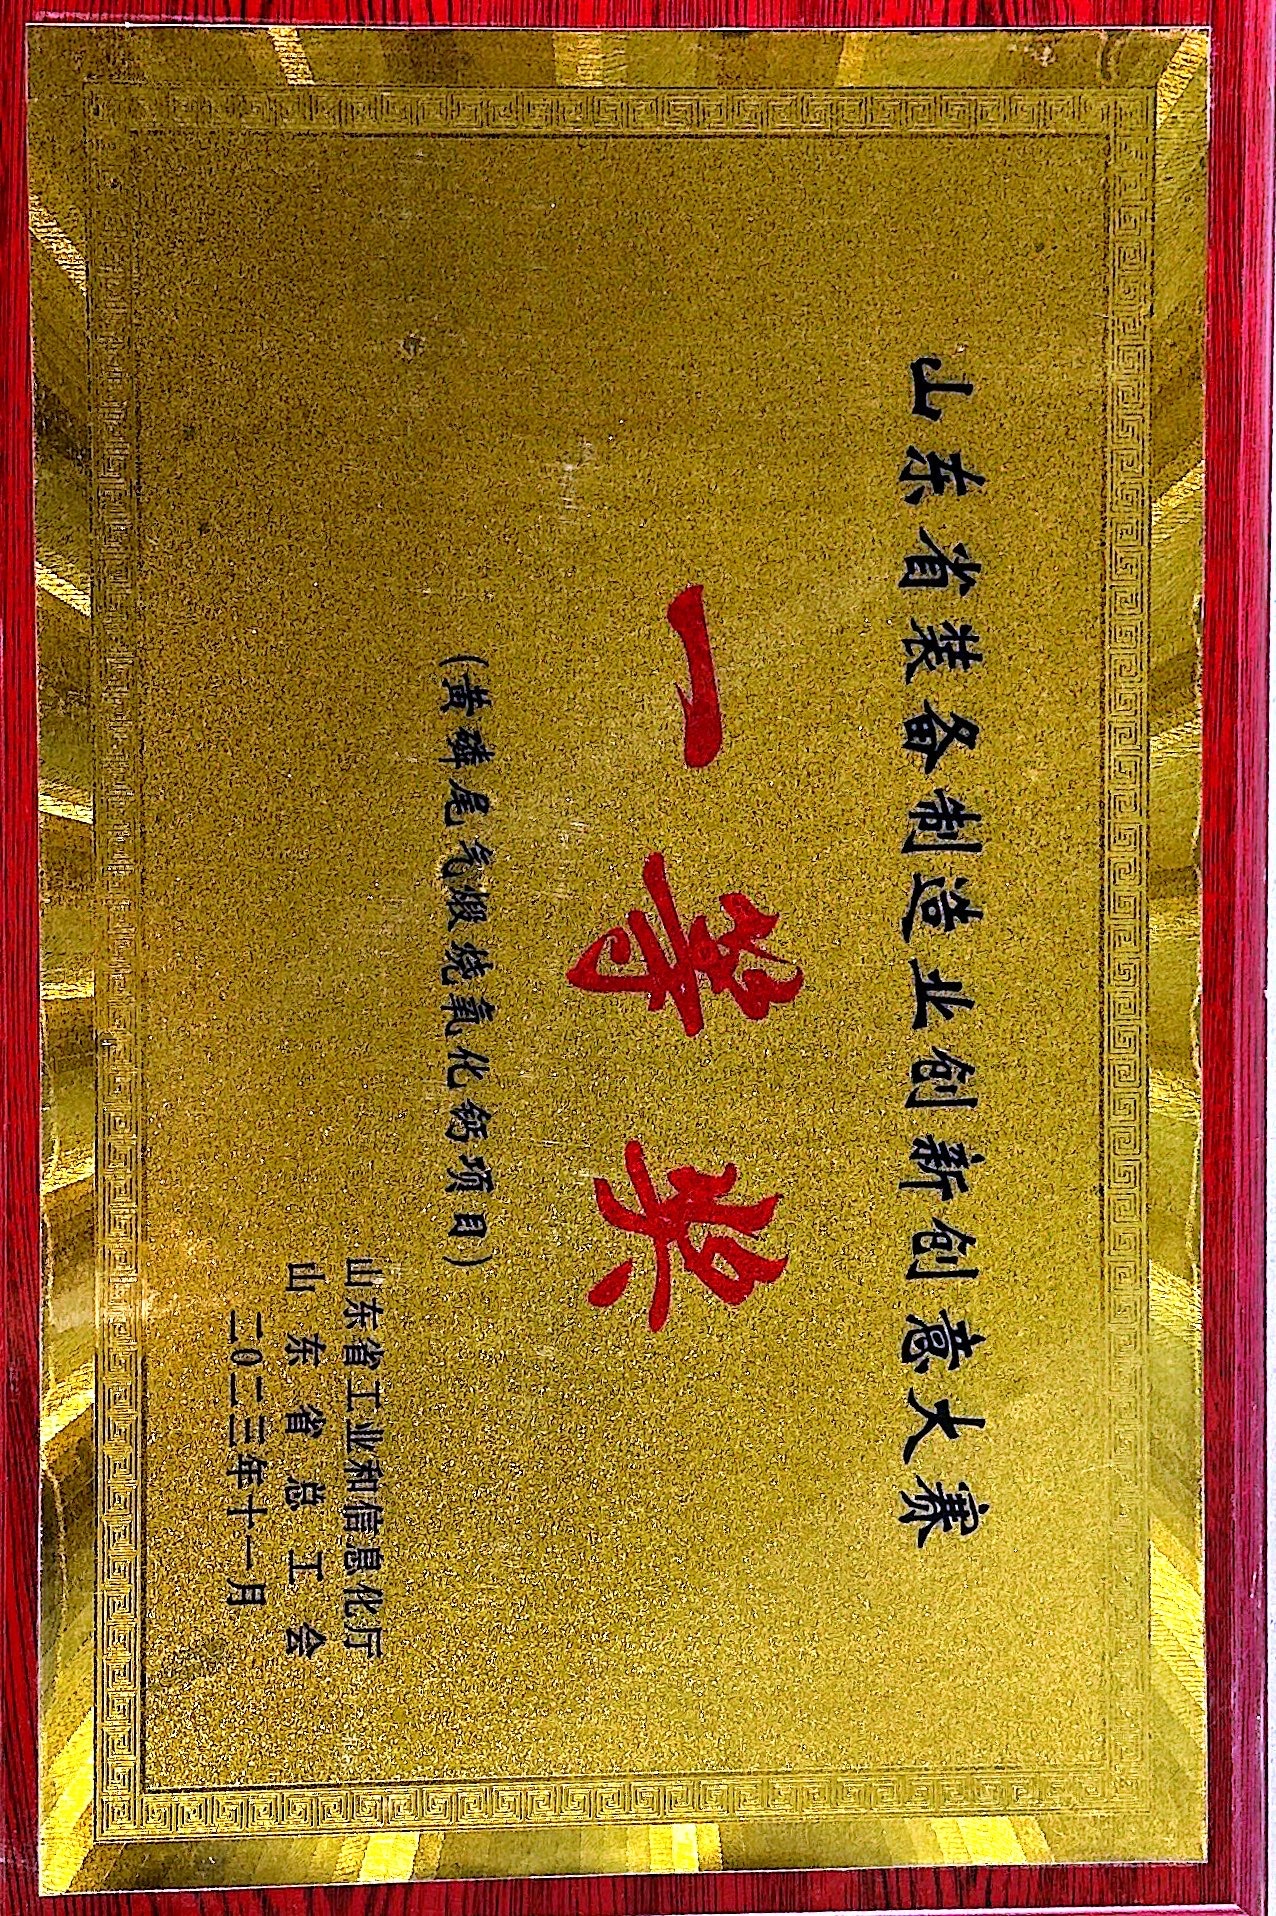 山东省装备制造业创新创意大赛
一等奖
(黄磷尾气煅烧氧化钙项目)
山东省工业和信息化厅
山东省总工会
二〇二三年十一月